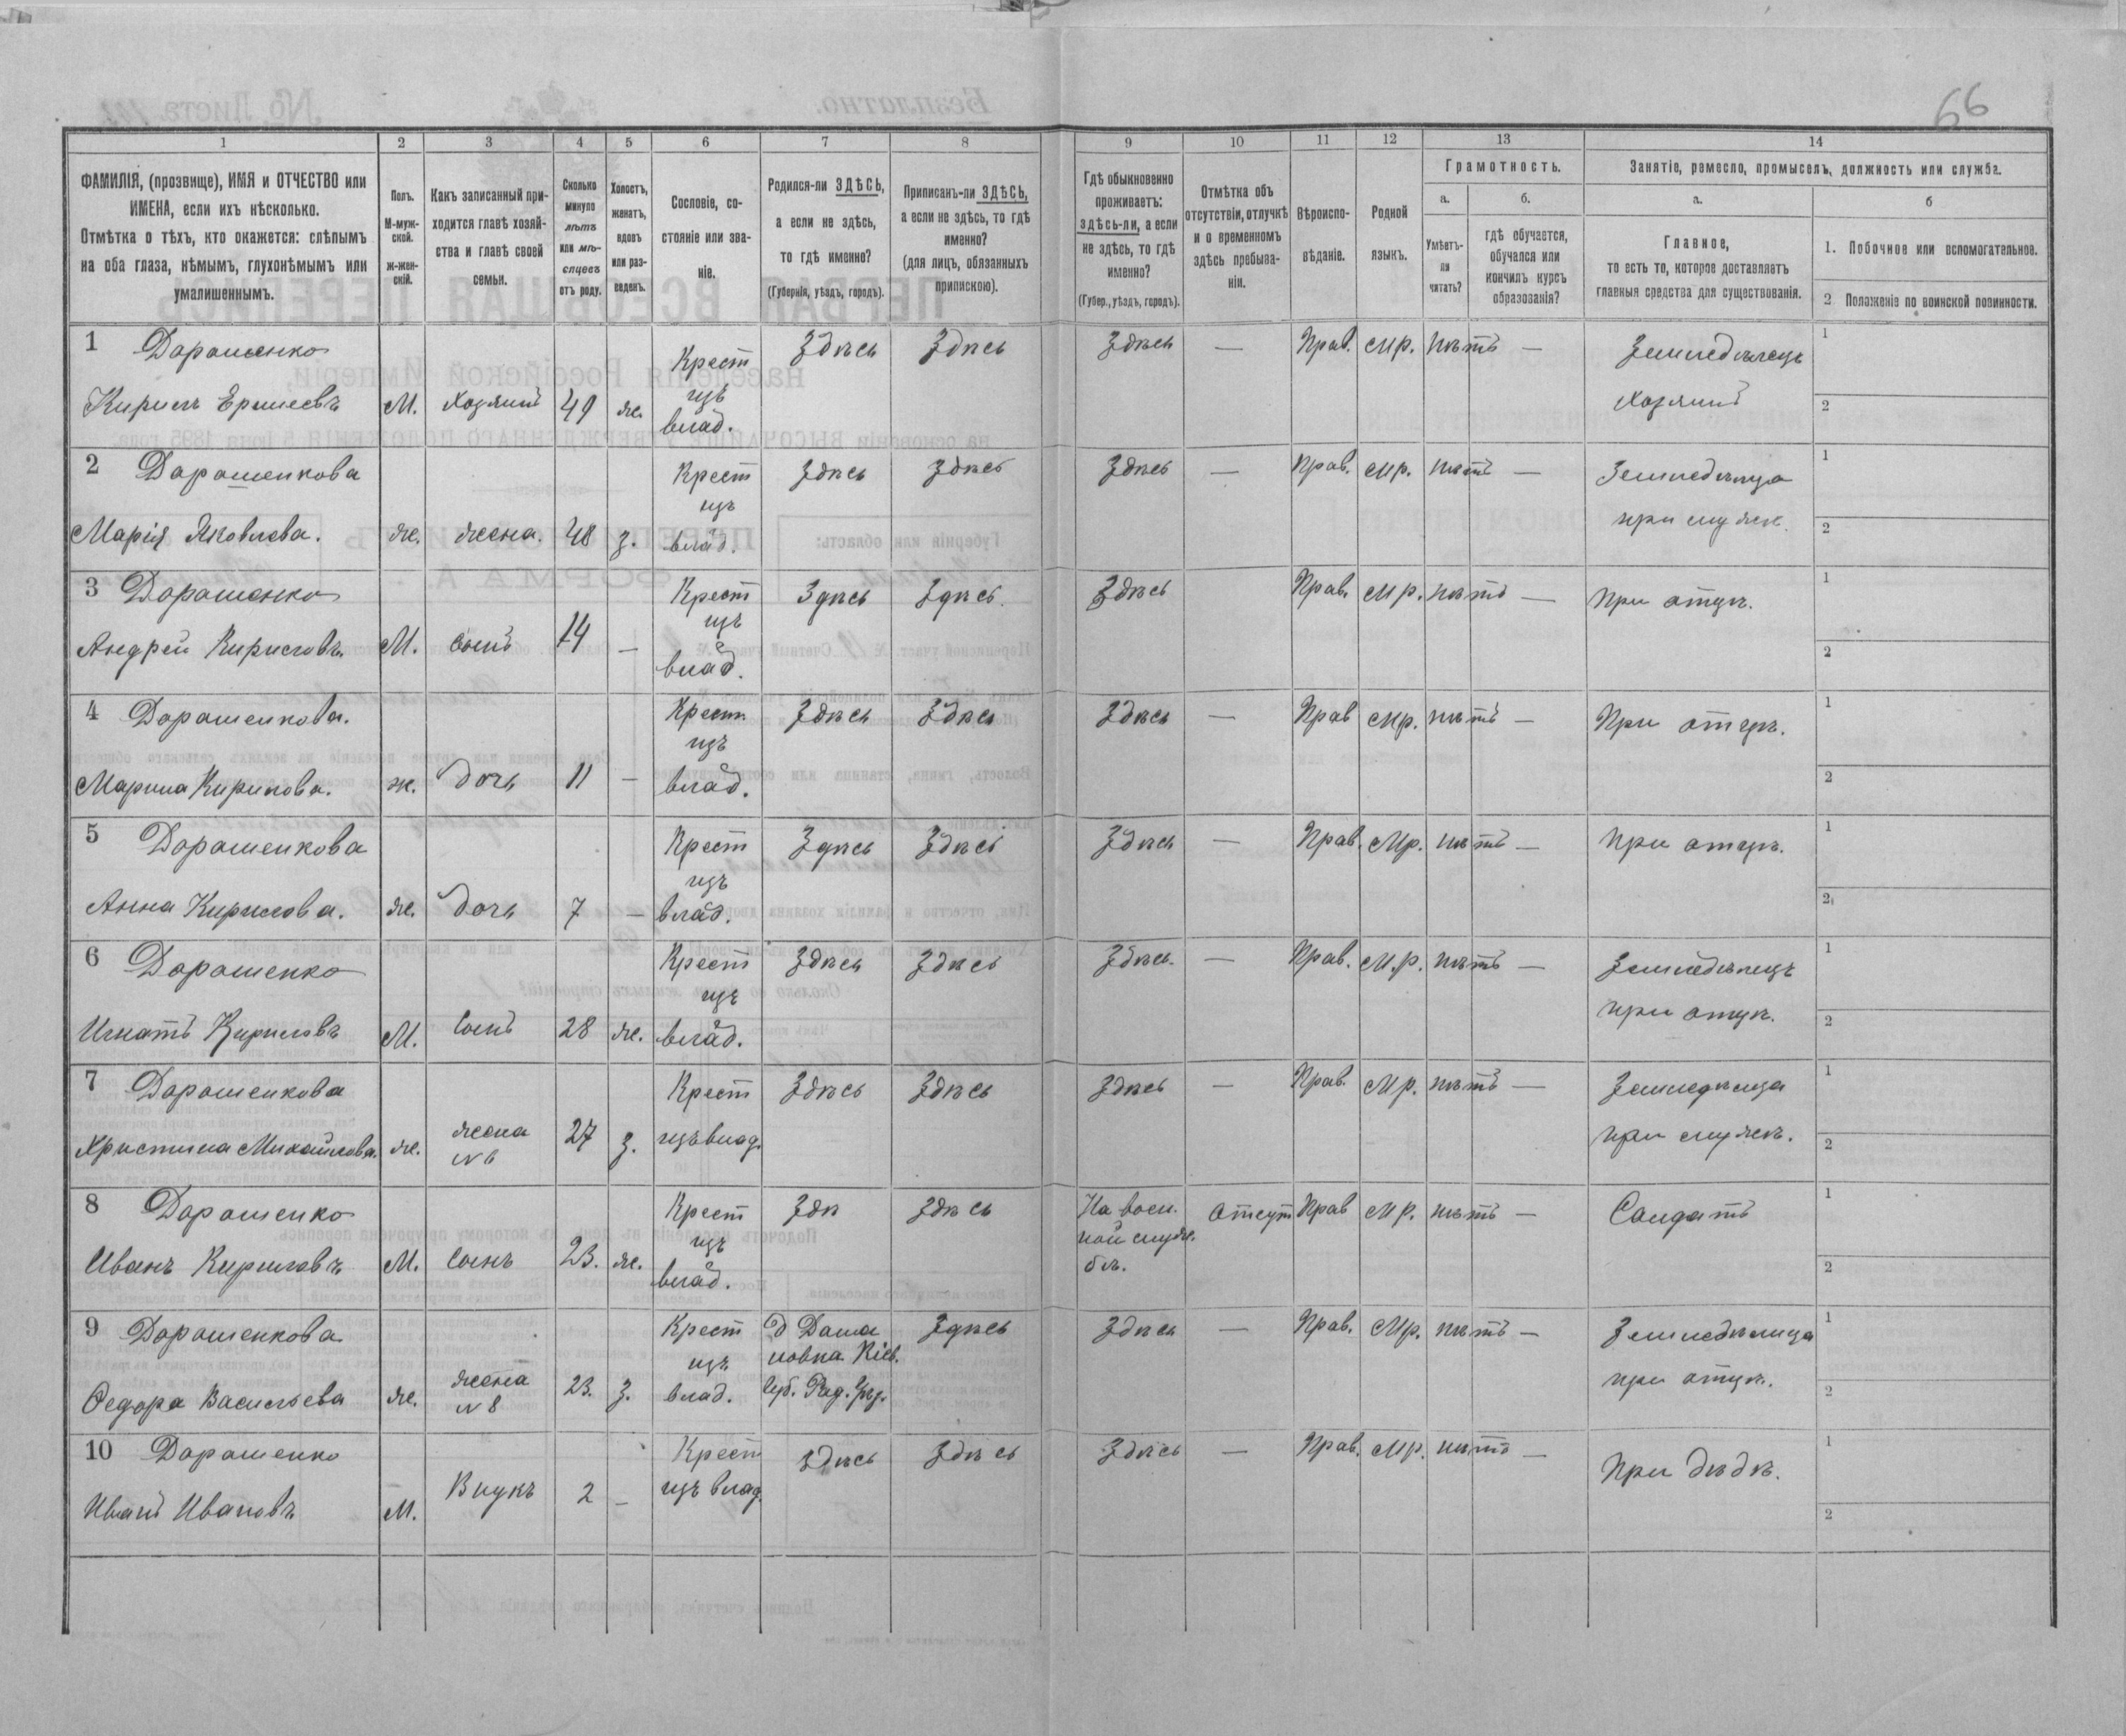 66
1 2 3 4 5 6 7 8 9 10 11 12 13 14
ФАМИЛІЯ, (прозвище), ИМЯ и ОТЧЕСТВО или
ИМЕНА, если ихъ нѣсколько.
Отмѣтка о тѣхъ, кто окажется: слѣпымъ
на оба глаза, нѣмымъ, глухонѣмымъ или
умалишеннымъ.
Полъ.
М-муж-
ской.
ж-жен-
скій.
Какъ записанный при-
ходится главѣ хозяй-
ства и главѣ своей
семьи.
Сколько
минуло
лѣтъ
или мѣ-
сяцевъ
отъ роду.
Холостъ,
женатъ,
вдовъ
или раз-
веденъ.
Сословіе, со-
стояніе или зва-
ніе.
Родился-ли ЗДѢСЬ,
а если не здѣсь,
то гдѣ именно?
(Губернія, уѣздъ, городъ).
Приписанъ-ли ЗДѢСЬ,
а если не здѣсь, то гдѣ
именно?
(для лицъ, обязанныхъ
припискою).
Гдѣ обыкновенно
проживаетъ:
здѣсь-ли, а если
не здѣсь, то гдѣ
именно?
(Губер., уѣздъ, городъ).
Отмѣтка объ
отсутствіи, отлучкѣ
и о временномъ
здѣсь пребыва-
ніи.
Вѣроиспо-
вѣданіе.
Родной
языкъ.
Грамотность.
а.
Умѣетъ-
ли
читать?
б.
гдѣ обучается,
обучался или
кончилъ курсъ
образованія?
Занятіе, ремесло, промыселъ, должность или служба.
а.
Главное,
то есть то, которое доставляетъ
главныя средства для существованія.
б
1. Побочное или вспомогательное.
2 Положеніе по воинской повинности.
1 Дорошенко
Кирилъ Ермеевъ М. хозяинъ 49 ж. Крест изъ влад. Здѣсь Здѣсь Здѣсь — Прав. Мр. нѣтъ — Земледѣлецъ хозяинъ 1 2
2 Дорошенкова
Марія Яковлева. ж. жена. 48 з. Крест изъ влад. Здѣсь Здѣсь Здѣсь — Прав. Мр. нѣтъ — Земледѣлица при мужѣ. 1 2
3 Дорошенко
Андрей Кириловъ М. сынъ 14 — Крест изъ влад. Здѣсь Здѣсь. Здѣсь Прав. Мр. нѣтъ — При отцѣ. 1 2
4 Дорошенкова.
Марина Кирилова. ж. дочь 11 — Крест изъ влад. Здѣсь Здѣсь Здѣсь — Прав Мр. нѣтъ — При отцѣ. 1 2
5 Дорошенкова
Анна Кирилова. ж. дочь 7 — Крест изъ влад. Здѣсь Здѣсь Здѣсь — Прав. Мр. нѣтъ — При отцѣ. 1 2
6 Дорошенко
Игнатъ Кириловъ М. сынъ 28 ж. Крест изъ влад. Здѣсь Здѣсь Здѣсь. — Прав. М.р. нѣтъ — Земледѣлецъ при отцѣ. 1 2
7 Дорошенкова
Христина Михайлова. ж. жена N 6 27 з. Крест изъ влад. Здѣсь Здѣсь Здѣсь — Прав. Мр. нѣтъ — Земледѣлица при мужѣ. 1 2
8 Дорошенко
Иванъ Кириловъ М. сынъ 23. ж. Крест изъ влад. Здѣ Здѣсь На воен. ной служ. бѣ. отсут Прав Мр. нѣтъ — Солдатъ 1 2
9 Дорошенкова
Ѳедора Васильева ж. жена N 8 23. з. Крест изъ влад. Кіев. Губ. Рад. Уѣз. Здѣсь Здѣсь — Прав. Мр. нѣтъ — Земледѣлица при отцѣ. 1 2
10 Дорошенко
Иванъ Ивановъ М. Внукъ 2 — Крест изъ влад. Здѣсь Здѣсь Здѣсь — Прав. Мр. нѣтъ — При дѣдѣ. 1 2